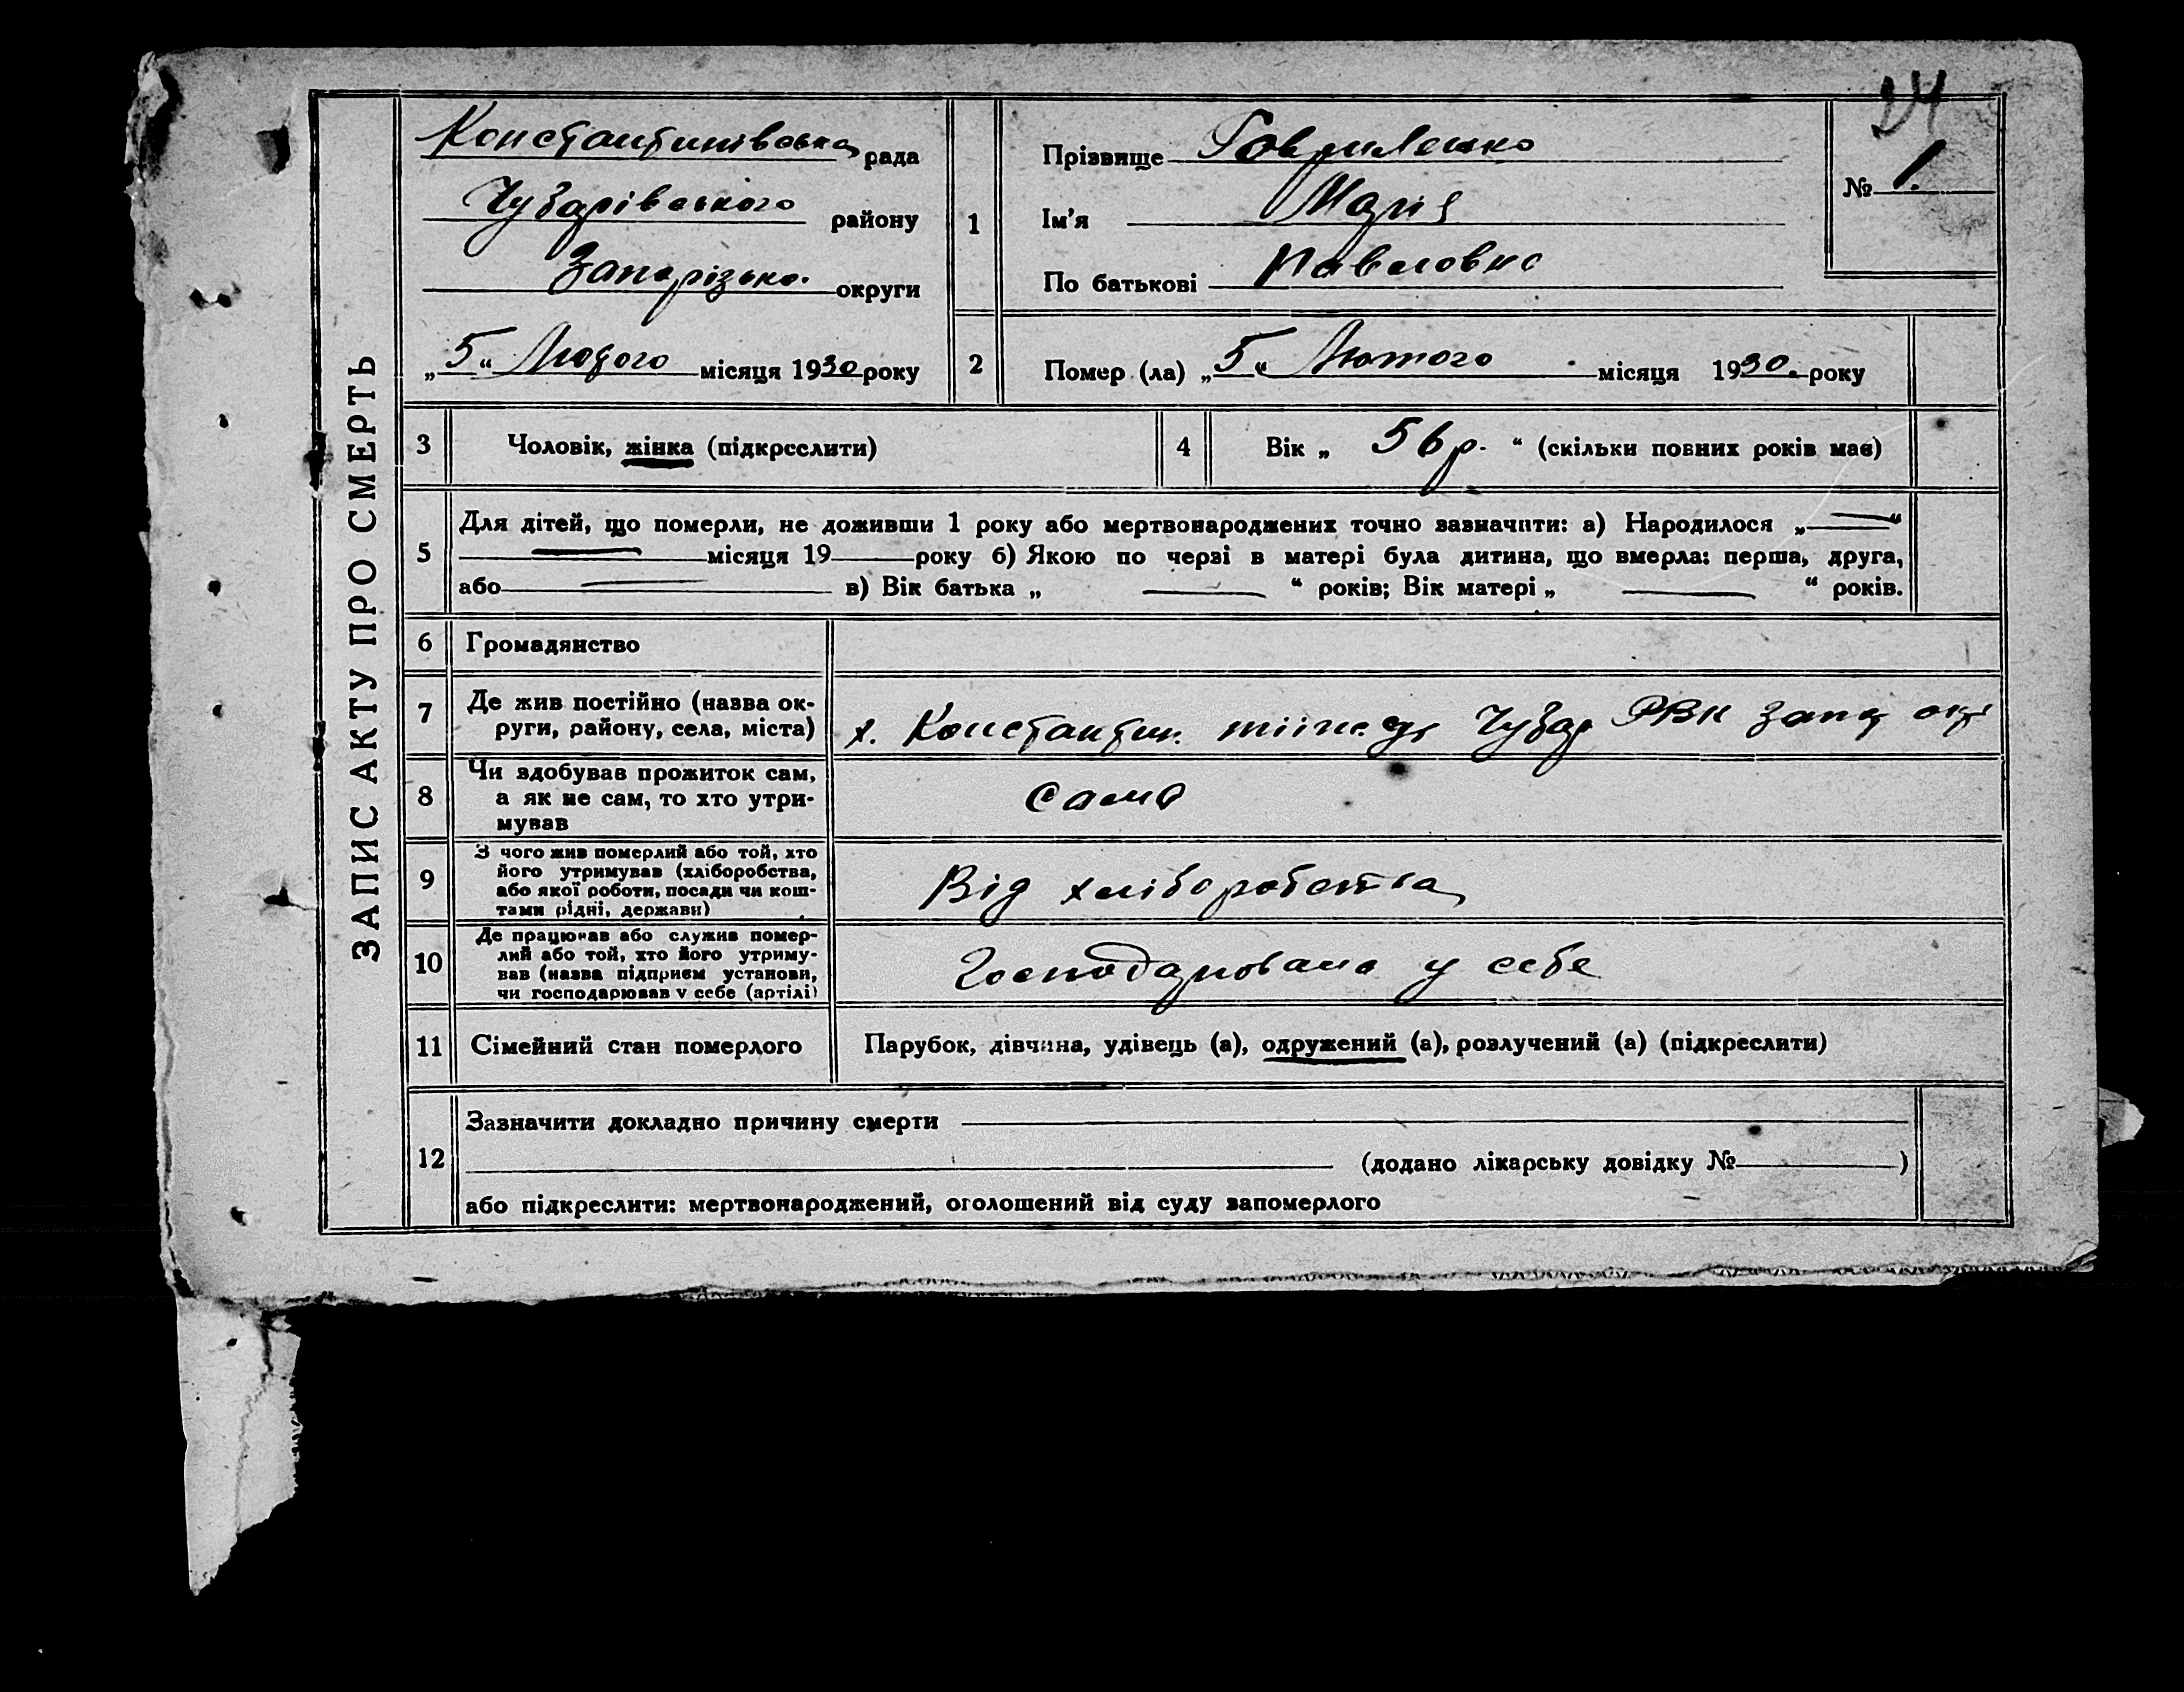 24
ЗАПИС АКТУ ПРО СМЕРТЬ
Константинівська рада
Чубарівського району
Запорізька округи
„5“ Лютого місяця 1930 року
1
Прізвище Гавриленко
Ім'я Марія
По батькові Павловна
№ 1.
2
Помер (ла) „5“ Лютого місяця 1930. року
3
Чоловік, жінка (підкреслити)
4
Вік „ 56 р. “ (скільки повних років має)
5
Для дітей, що померли, не доживши 1 року або мертвонароджених точно зазначити: а) Народилося „—“
— місяця 19 року б) Якою по черзі в матері була дитина, що вмерла: перша, друга,
або — в) Вік батька „ — “ років; Вік матері „ — “ років.
6
Громадянство
7
Де жив постійно (назва ок-
руги, району, села, міста)
х. Константин. Чубар РВК Запор окр
8
Чи здобував прожиток сам,
а як не сам, то хто утри-
мував
сама
9
З чого жив померлий або той, хто
його утримував (хліборобства,
або якої роботи, посади чи кош-
тами рідні, держави)
Від хліборобства
10
Де працював або служив помер-
лий або той, хто його утриму-
вав (назва підприєм установи,
чи господарював у себе (артілі)
Господарювала у себе
11
Сімейний стан померлого
Парубок, дівчина, удівець (а), одружений (а), розлучений (а) (підкреслити)
12
Зазначити докладно причину смерти
(додано лікарську довідку № )
або підкреслити: мертвонароджений, оголошений від суду запомерлого